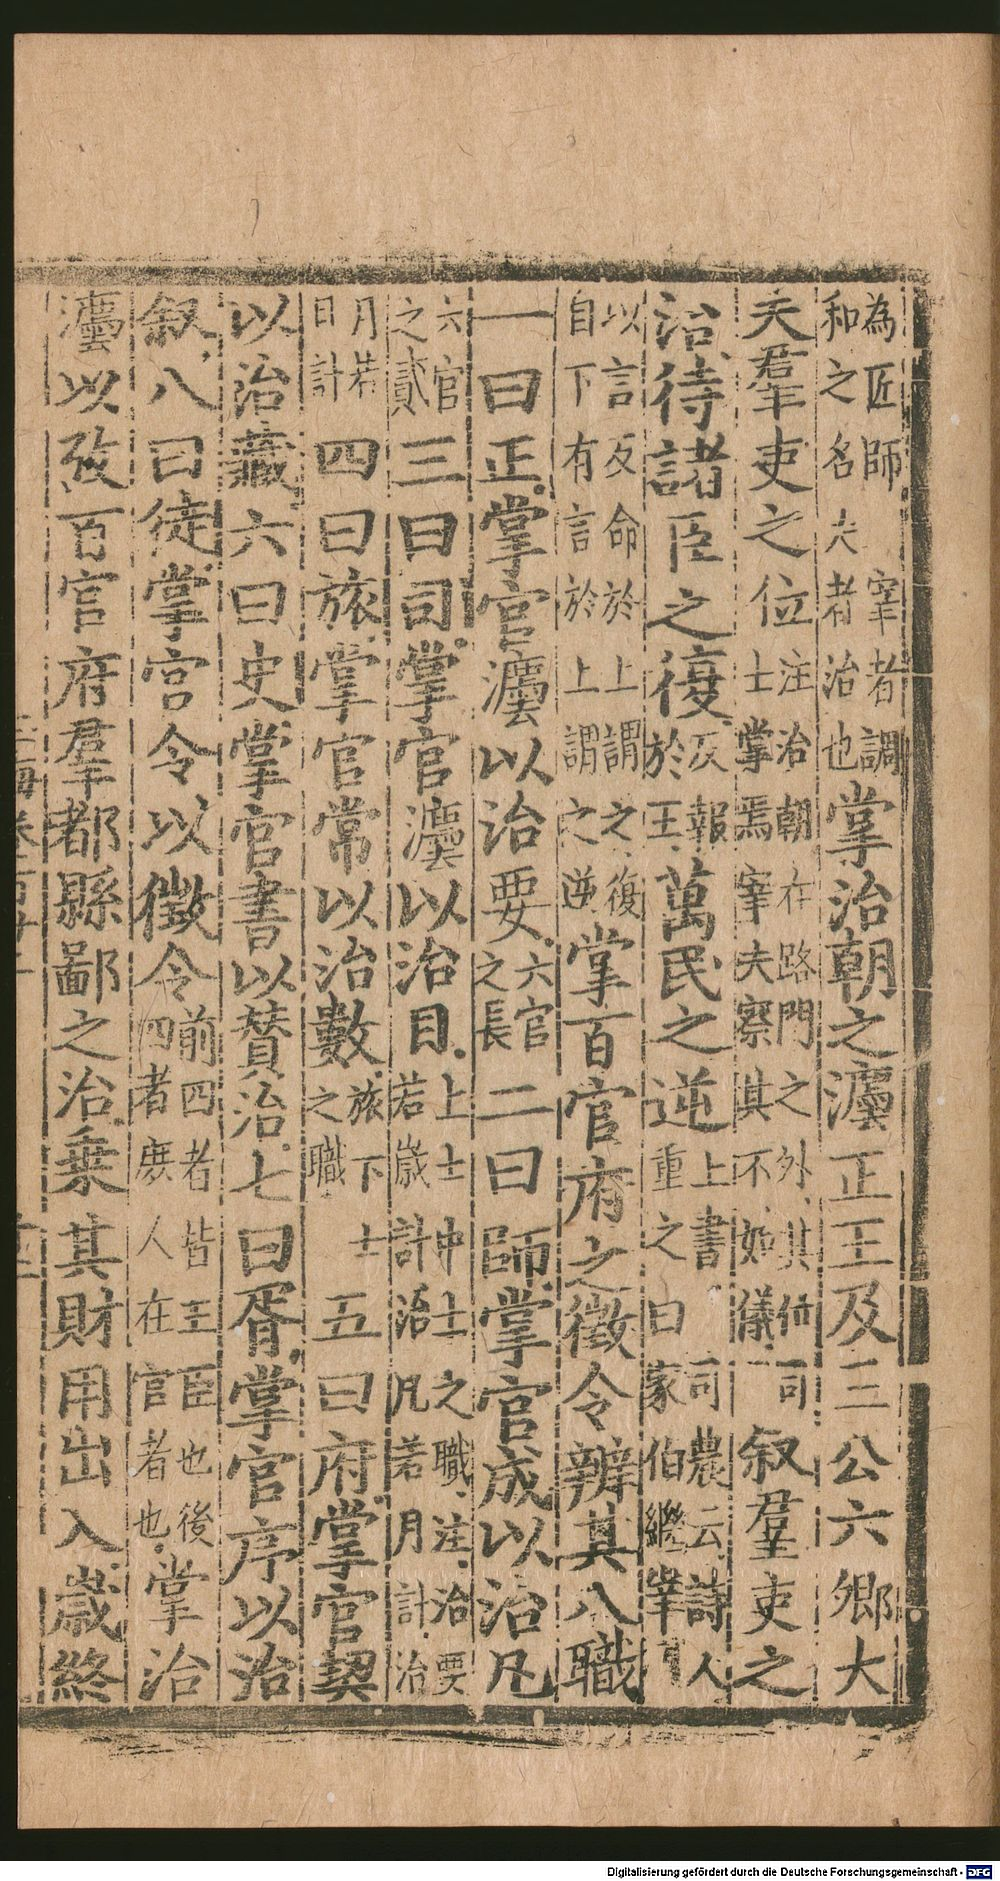 為匠師　宰者調和之名夫者治也掌治朝之灋正王及三公六卿大
夫羣吏之位注治朝在路門之外其位司士掌焉宰夫察其不如儀敘羣吏之
治待諸臣之復反報於王萬民之逆上書重之曰司農云詩人家伯維宰
以言反命於上謂之復自下有言於上謂之逆掌百官府之徵令辨其八職
一曰正掌官灋以治要六官之長二曰師掌官成以治凡
六官之貳三曰司掌官灋以治目上士中士之職注治要若歲計治凡若月計治
月若日計四曰旅掌官常以治數旅下士之職五曰府掌官契
以治藏六曰史掌官書以贊治七曰胥掌官序以治
敘八曰徒掌官令以徵令前四者皆王臣也後四者庶人在官者也掌治
灋以攷百官府羣都縣鄙之治乗其財用出入歲終
Digitalisierung gefördert durch die Deutsche Forschungsgemeinschaft - DFG